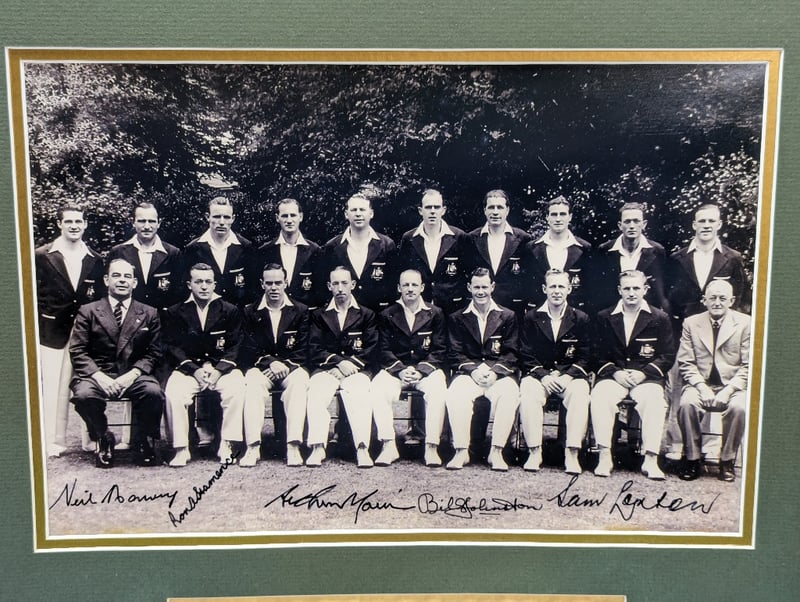 Neil Harvey
Ron Hamence
Arthur Morris
Bill Johnston
Sam Loxton